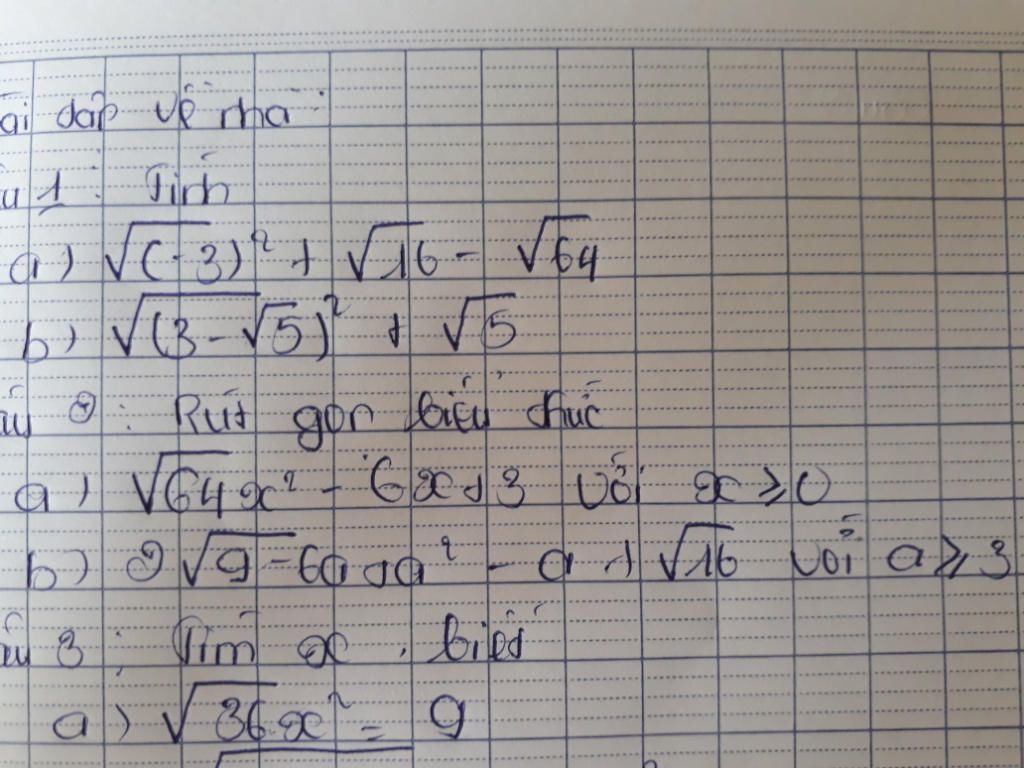 ài dập về nhà:
u 1: Tính
a) √(-3)² + √16 - √64
b) √(3-√5)² + √5
âu 2: Rút gọn biểu thức
a) √64x² - 6x+3 với x ≥ 0
b) 2√9-6a+a² - a + √16 với a ≥ 3
âu 3: Tìm x, biết
a) √36x² = 9